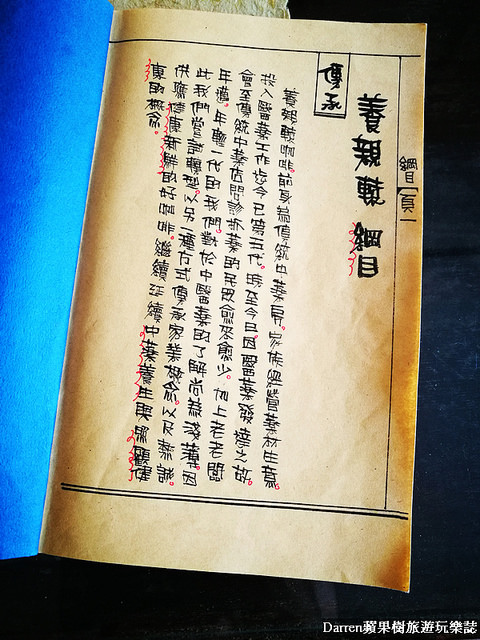 綱目 頁一
養親 綱目
傳承
養親 咖啡前身為傳統中藥房。家族經營藥材生意。
投入醫藥工作迄今已第五代。時至今日。因醫藥發達之故。
會至傳統中藥店問診抓藥的民眾愈來愈少。加上老老闆
年邁。年輕一代的我們。對於中醫藥的了解尚為淺薄。因
此我們嘗試轉型。以另一種方式傳承家業概念。以及
供應健康新鮮的好咖啡。繼續延續中藥養生與照顧健
康的概念。
Darren蘋果樹旅遊玩樂誌